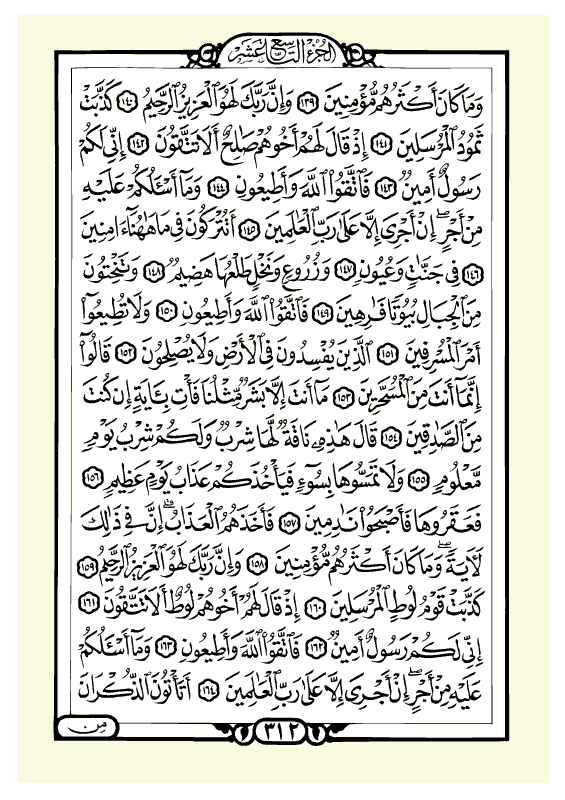 الجزء التاسع عشر
وَمَا كَانَ أَكْثَرُهُم مُّؤْمِنِينَ ١٣٩ وَإِنَّ رَبَّكَ لَهُوَ ٱلْعَزِيزُ ٱلرَّحِيمُ ١٤٠ كَذَّبَتْ
ثَمُودُ ٱلْمُرْسَلِينَ ١٤١ إِذْ قَالَ لَهُمْ أَخُوهُمْ صَٰلِحٌ أَلَا تَتَّقُونَ ١٤٢ إِنِّى لَكُمْ
رَسُولٌ أَمِينٌ ١٤٣ فَٱتَّقُوا۟ ٱللَّهَ وَأَطِيعُونِ ١٤٤ وَمَآ أَسْـَٔلُكُمْ عَلَيْهِ
مِنْ أَجْرٍ ۖ إِنْ أَجْرِىَ إِلَّا عَلَىٰ رَبِّ ٱلْعَٰلَمِينَ ١٤٥ أَتُتْرَكُونَ فِى مَا هَٰهُنَآ ءَامِنِينَ
١٤٦ فِى جَنَّٰتٍ وَعُيُونٍ ١٤٧ وَزُرُوعٍ وَنَخْلٍ طَلْعُهَا هَضِيمٌ ١٤٨ وَتَنْحِتُونَ
مِنَ ٱلْجِبَالِ بُيُوتًا فَٰرِهِينَ ١٤٩ فَٱتَّقُوا۟ ٱللَّهَ وَأَطِيعُونِ ١٥٠ وَلَا تُطِيعُوٓا۟
أَمْرَ ٱلْمُسْرِفِينَ ١٥١ ٱلَّذِينَ يُفْسِدُونَ فِى ٱلْأَرْضِ وَلَا يُصْلِحُونَ ١٥٢ قَالُوٓا۟
إِنَّمَآ أَنتَ مِنَ ٱلْمُسَحَّرِينَ ١٥٣ مَآ أَنتَ إِلَّا بَشَرٌ مِّثْلُنَا فَأْتِ بِـَٔايَةٍ إِن كُنتَ
مِنَ ٱلصَّٰدِقِينَ ١٥٤ قَالَ هَٰذِهِۦ نَاقَةٌ لَّهَا شِرْبٌ وَلَكُمْ شِرْبُ يَوْمٍ
مَّعْلُومٍ ١٥٥ وَلَا تَمَسُّوهَا بِسُوٓءٍ فَيَأْخُذَكُمْ عَذَابُ يَوْمٍ عَظِيمٍ ١٥٦
فَعَقَرُوهَا فَأَصْبَحُوا۟ نَٰدِمِينَ ١٥٧ فَأَخَذَهُمُ ٱلْعَذَابُ ۗ إِنَّ فِى ذَٰلِكَ
لَءَايَةً ۖ وَمَا كَانَ أَكْثَرُهُم مُّؤْمِنِينَ ١٥٨ وَإِنَّ رَبَّكَ لَهُوَ ٱلْعَزِيزُ ٱلرَّحِيمُ ١٥٩
كَذَّبَتْ قَوْمُ لُوطٍ ٱلْمُرْسَلِينَ ١٦٠ إِذْ قَالَ لَهُمْ أَخُوهُمْ لُوطٌ أَلَا تَتَّقُونَ ١٦١
إِنِّى لَكُمْ رَسُولٌ أَمِينٌ ١٦٢ فَٱتَّقُوا۟ ٱللَّهَ وَأَطِيعُونِ ١٦٣ وَمَآ أَسْـَٔلُكُمْ
عَلَيْهِ مِنْ أَجْرٍ ۖ إِنْ أَجْرِىَ إِلَّا عَلَىٰ رَبِّ ٱلْعَٰلَمِينَ ١٦٤ أَتَأْتُونَ ٱلذُّكْرَانَ
مِنَ
٣١٢